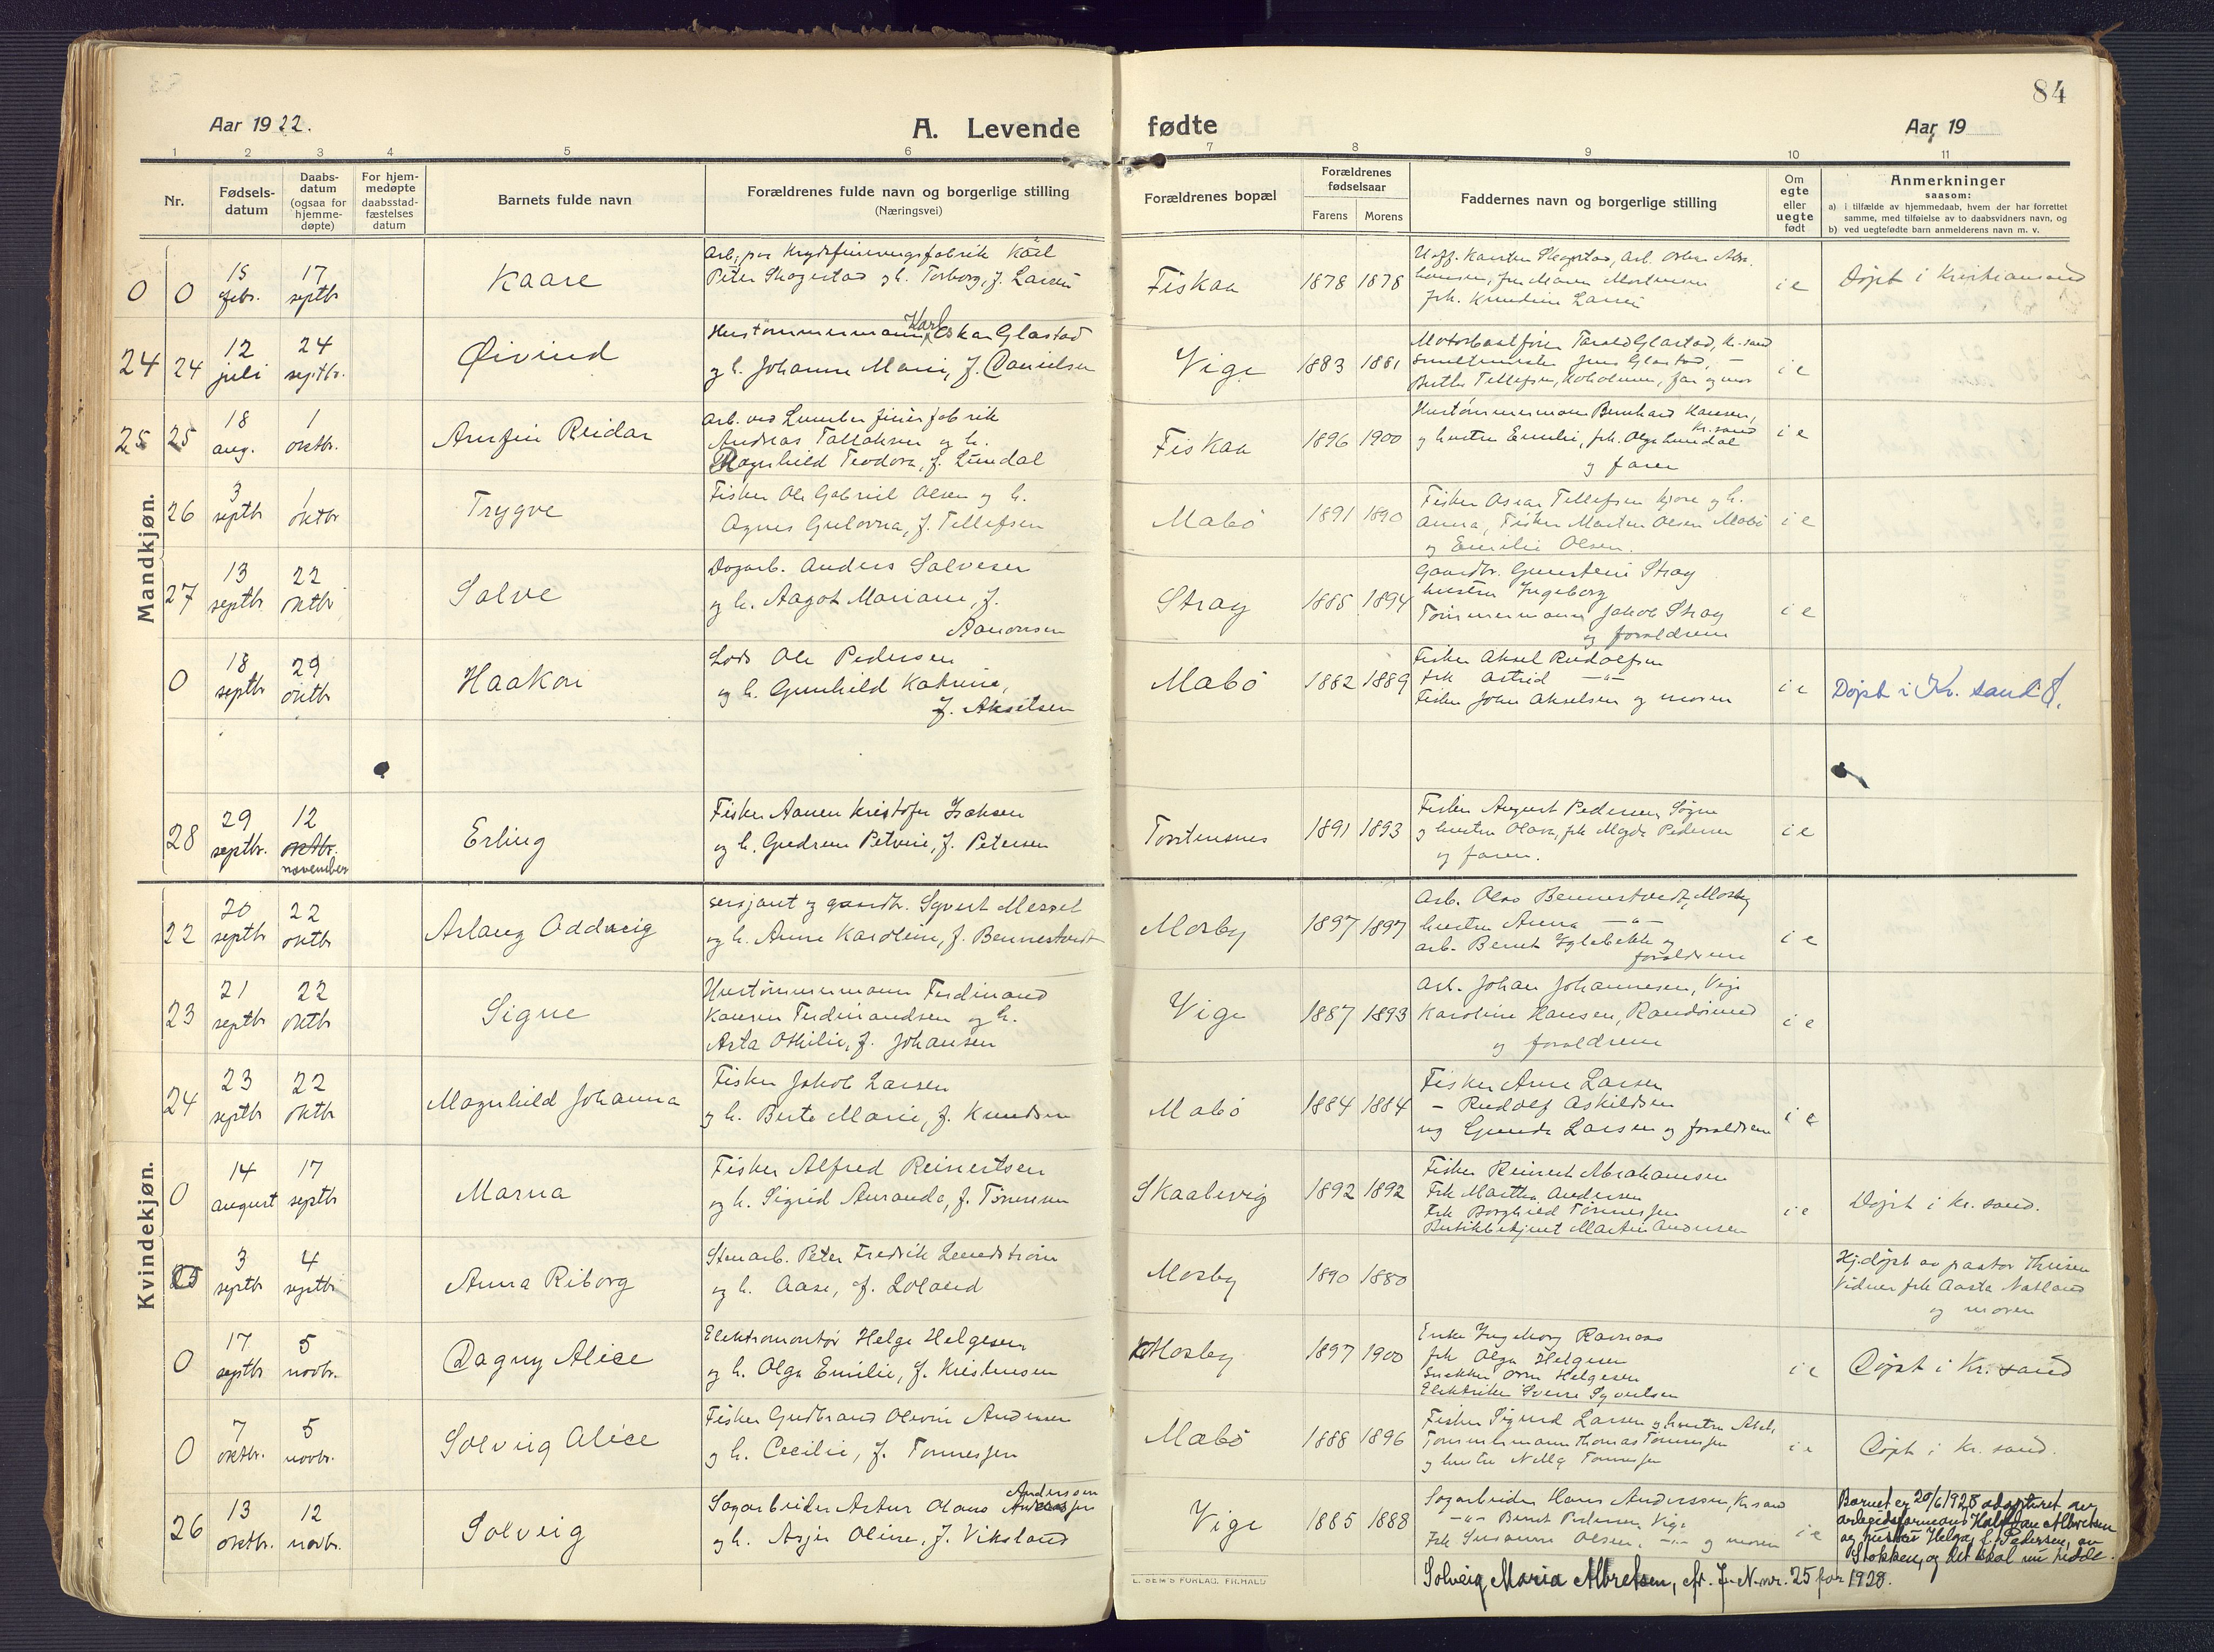 84
Aar 1922.
A. Levende fødte
Aar 19
1 2 3 4 5 6 7 8 9 10 11
Nr.
Fødsels-
datum
Daabs-
datum
(ogsaa for
hjemme-
døpte)
For hjem-
medøpte
daabsstad-
fæstelses
datum
Barnets fulde navn
Forældrenes fulde navn og borgerlige stilling
(Næringsvei)
Forældrenes bopæl
Forældrenes
fødselsaar
Farens Morens
Faddernes navn og borgerlige stilling
Om
egte
eller
uegte
født
Anmerkninger
saasom:
a) i tilfælde av hjemmedaab, hvem der har forrettet
samme, med tilføielse av to daabsvidners navn, og
b) ved uegtefødte barn anmelderens navn m. v.
Mandkjøn.
0 0
15 febr.
17 septbr
Kaare
Peter Skogestad og h. Torborg, f. Larsen
Fiskaa
1878 1878
frk. Larsen
i e
Døpt i Kristiansand
24 24
12 juli
24 septbr.
Øivind
Hustømmermann Karl Oskar Glastad
og h. Johanne Marie, f. Danielsen
Vige
1883 1881
Motorbaatfører Tarald Glastad, Kr.sand
Jens Glastad, —
Berthe Tellefsen, far og mor
i e
25 25
18 aug.
1 oktbr.
Arnfin Reidar
Arb. ved Lumber finérfabrik
Andreas og h.
Magnhild Teodora, f. Lundal
Fiskaa
1896 1900
Hustømmermann Bernhard Hansen,
Kr.sand
og hustru Emilie, frk. Olga Lundal
og faren
i e
26
3 septbr
1 oktbr
Trygve
Fisker Ole Gabriel Olsen og h.
Agnes Gulovna, f. Tellefsen
Mabø
1891 1890
Fisker Oskar Tellefsen Kjøre og h.
Anna, Fisker Martin Olsen Mabø
og Emilie Olsen.
i e
27
13 septbr
22 oktbr
Salve
Dagarb. Anders Salvesen
og h. Aagot Mariane, f.
Aanonsen
Stray
1885 1894
Gaardbr. Gunstein Stray
hustru Ingeborg
Tømmermann Jakob Stray
og forældrene
i e
0
18 septbr
29 oktbr
Haakon
Lods Ole Pedersen
og h. Gunhild Katrine,
f. Akselsen
Mabø
1882 1889
Fisker Aksel Rudolfsen
frk Astrid —"—
Fisker John Akselsen og moren
i e
Døpt i Kr. sand
28
29 septbr.
12 oktbr.
november
Erling
Fisker Aanen Kristofer Isaksen
og h. Gudrun Petvine, f. Petersen
Torstensnes
1891 1893
Fisker August Pedersen, Søgne
og hustru Olava, frk Magda Pedersen
og faren.
i e
Kvindekjøn.
22
20 septbr
22 oktbr
Aslaug Oddveig
sersjant og gaardbr. Syvert Messel
og h. Anne Karoline, f. Bennestvedt
Mosby
1897 1897
Arb. Olav Bennestvedt, Mosby
hustru Anna —"—
arb. Bernt Iglebekk og
forældrene
i e
23
21 septbr
22 oktbr
Signe
Hustømmermann Ferdinand
Hansen Ferdinandsen og h.
Asta Othilie, f. Johansen
Vige
1887 1893
Arb. Johan Johannesen, Vige
Karoline Hansen, Randøsund
og forældrene
i e
24
23 septbr
22 oktbr
Magnhild Johanna
Fisker Jakob Larsen
og h. Berte Marie, f. Knudsen
Mabø
1884 1884
Fisker Arne Larsen
— Rudolf Askildsen
og Gunda Larsen og forældrene
i e
0
14 august
17 septbr
Marna
Fisker Alfred Reinertsen
og h. Sigrid Amanda, f. Tønnesen
Skaalevig
1892 1892
Fisker Reinert Abrahamsen
Frk Martha Andersen
Frk Borghild Tønnessen
Butikbetjent Martin Andersen
i e
Døpt i Kr. sand.
25
3 septbr
4 septbr
Anna Riborg
Stenarb. Peter Fredrik Lundstrøm
og h. Aase, f. Loland
Mosby
1890 1880
Hj.døpt av pastor
Vidner frk Aasta Natland
og moren
0
17 septbr
5 novbr.
Dagny Alice
Elektromontør Helge Helgesen
og h. Olga Emilie, f. Kristensen
Mosby
1897 1900
Enke Ingeborg Ravnaas
frk Olga Helgesen
Snekker Orm Helgesen
Elektriker Sverre Syvertsen
i e
Døpt i Kr. sand
0
7 oktbr.
5 novbr.
Solveig Alice
Fisker Gudbrand Olevin Andersen
og h. Cecilie, f. Tønnessen
Mabø
1888 1896
Fisker Sigurd Larsen og hustru
Tømmermann Thomas Tønnessen
og hustru Nella Tønnessen
i e
Døpt i Kr. sand.
26
13 oktbr.
12 novbr.
Solveig
Anderssen
Sagarbeider Artur Olaus
og h. Asja Oline, f. Viksland
Vige
1885 1888
Sagarbeider Hans Anderssen, Kr sand
—"— Bernt Pedersen, Vige
Frk Susanne Olsen, —"— og moren
i e
Barnet er 20/6 1928 adoptert av
arbeidsformand Halfdan Albretsen
og hustru Helga f. Pedersen, av
Stokken, og det skal nu hedde
Solveig Maria Albretsen, cfr. J. N. nr. 25 for 1928.
E. SEM'S FORLAG, FR.HALD